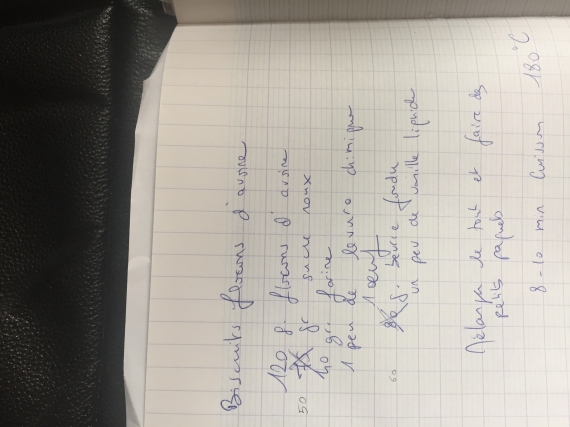 Biscuits flocons d'avoine
120 g. flocons d'avoine
50 75 gr sucre roux
40 gr. farine
1 peu de levure chimique
1 oeuf
60 80 g. beurre fondu
un peu de vanille liquide
Mélanger le tout et faire des
petits paquets
8-10 min Cuisson 180°C